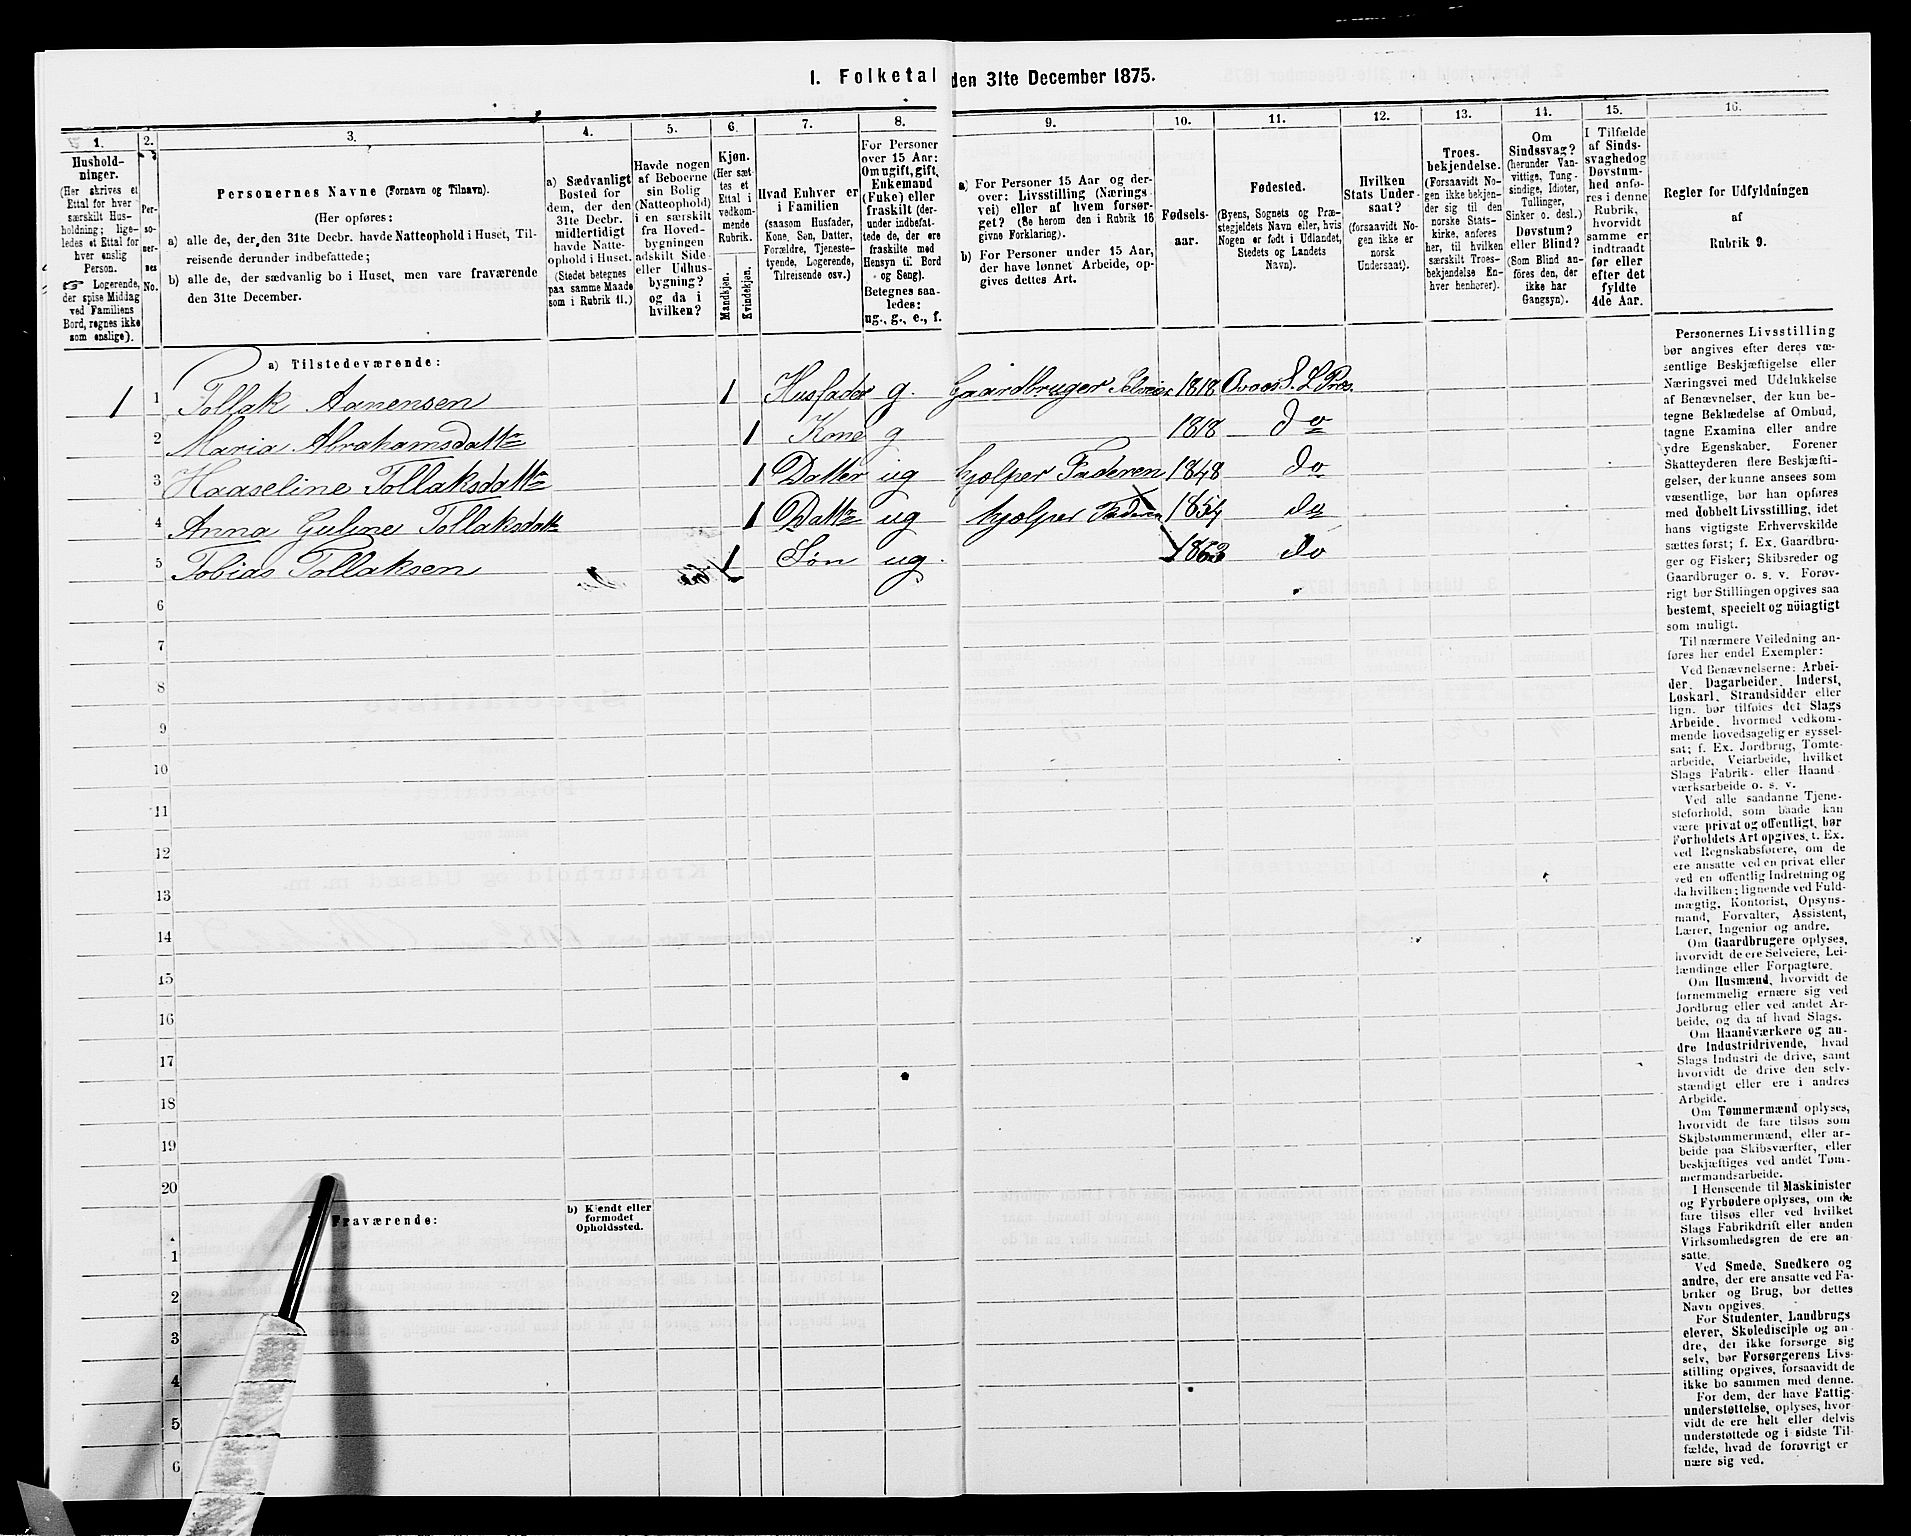 I. Folketal den 31te December 1875.
1. 2. 3. 4. 5. 6. 7. 8. 9. 10. 11. 12. 13. 14. 15. 16.
Hushold-
ninger.
(Her skrives et
Ettal for hver
særskilt Hus-
holdning; lige-
ledes et Ettal for
hver enslig
Person.
☞ Logerende,
der spise Middag
ved Familiens
Bord, regnes ikke
som enslige).
Per-
so-
ner-
nes
No.
Personernes Navne (Fornavn og Tilnavn).
(Her opføres:
a) alle de, der den 31te Decbr. havde Natteophold i Huset, Til-
reisende derunder indbefattede;
b) alle de, der sædvanlig bo i Huset, men vare fraværende
den 31te December.
a) Sædvanligt
Bosted for
dem, der den
31te Decbr.
midlertidigt
havde Natte-
ophold i Huset.
(Stedet betegnes
paa samme Maade
som i Rubrik 11.)
Havde nogen
af Beboerne
sin Bolig
(Natteophold)
i en særskilt
fra Hoved-
bygningen
adskilt Side-
eller Udhus-
bygning?
og da i
hvilken?
Kjøn.
(Her sæt-
tes et
Ettal i
vedkom-
mende
Rubrik.
Mandkjøn.
Kvindekjøn.
Hvad Enhver er
i Familien
(saasom Husfader,
Kone, Søn, Datter,
Forældre, Tjeneste-
tyende, Logerende,
Tilreisende osv.)
For Personer
over 15 Aar:
Om ugift, gift,
Enkemand
(Fuke) eller
fraskilt (der-
under indbefat-
tede de, der ere
fraskilte med
Hensyn til Bord
og Seng).
Betegnes saa-
ledes:
ug., g., e., f.
a) For Personer 15 Aar og der-
over: Livsstilling (Nærings-
vei) eller af hvem forsør-
get? (Se herom den i Rubrik 16
givne Forklaring).
b) For Personer under 15 Aar,
der have lønnet Arbeide, op-
gives dettes Art.
Fødsels-
aar.
Fødested.
(Byens, Sognets og Præ-
stegjeldets Navn eller, hvis
Nogen er født i Udlandet,
Stedets og Landets
Navn).
Hvilken
Stats Under-
saat?
(forsaavidt No-
gen ikke er
norsk
Undersaat).
Troes-
bekjendelse.
(Forsaavidt No-
gen ikke bekjen-
der sig til den
norske Stats-
kirke, anføres
her, til hvilken
særskilt Troes-
bekjendelse En-
hver henhører).
Om
Sindssvag?
(herunder Van-
vittige, Tung-
sindige, Idioter,
Sinker o. desl.)
Døvstum?
eller Blind?
(Som Blind an-
føres den, der
ikke har
Gangsyn).
I Tilfælde
af Sinds-
svaghed og
Døvstum-
hed anfø-
res i denne
Rubrik,
hvorvidt
samme er
indtraadt
før eller
efter det
fyldte
4de Aar.
Regler for Udfyldningen
af
Rubrik 9.
a) Tilstedeværende:
1 1 Tollak Aanensen 1 Husfader g. Gaardbruger Selveier 1818
2 Maria Abrahamsdattr 1 Kone g 1818 do
3 Haaseline Tollaksdattr 1 Datter ug hjælper Faderen 1848 do
4 Anna Guline Tollaksdattr 1 Dattr ug hjælper Faderen 1854 do
5 Tobias Tollaksen 1 Søn ug. 1863 do
6
7
8
9
10
11
12
13
14
15
16
17
18
19
20
Fraværende:
b) Kjendt eller
formodet
Opholdssted.
1
2
3
4
5
6
Personernes Livsstilling
bør angives efter deres væ-
sentlige Beskjæftigelse eller
Næringsvei med Udelukkelse
af Benævnelser, der kun be-
tegne Beklædelse af Ombud,
tagne Examina eller andre
ydre Egenskaber. Forener
Skatteyderen flere Beskjæfti-
gelser, der kunne ansees som
væsentlige, bør han opføres
med dobbelt Livsstilling, idet
hans vigtigste Erhvervskilde
sættes først; f. Ex. Gaardbru-
ger og Fisker; Skibsreder og
Gaardbruger o. s. v. Forøv-
rigt bør Stillingen opgives saa
bestemt, specielt og nöiagtigt
som muligt.
Til nærmere Veiledning an-
føres her endel Exempler:
Ved Benævnelserne: Arbei-
der, Dagarbeider, Inderst,
Løskarl, Strandsidder eller
lign. bør tilføies det Slags
Arbeide, hvormed vedkom-
mende hovedsagelig er syssel-
sat; f. Ex. Jordbrug, Tomte-
arbeide, Veiarbeide, hvilket
Slags Fabrik- eller Haand
værksarbeide o. s. v.
Ved alle saadanne Tjene-
steforhold, som baade kan
være privat og offentligt, bør
Forholdets Art opgives, t. Ex.
ved Regnskabsførere, om de
ere ansatte ved en privat eller
ved en offentlig Indretning og
da hvilken; lignende ved Fuld-
mægtig, Kontorist, Opsyns-
mand, Forvalter, Assistent,
Lærer, Ingeniør og andre.
Om Gaardbrugere oplyses,
hvorvidt de ere Selveiere, Lei-
lændinge eller Forpagtere.
Om Husmænd, hvorvidt de
fornemmelig ernære sig ved
Jordbrug eller ved andet Ar-
beide, og da af hvad Slags.
Om Haandværkere og an-
dre Industridrivende, hvad
Slags Industri de drive, samt
hvorvidt de drive den selv-
stændigt eller ere i andres
Arbeide.
Om Tømmermænd oplyses,
hvorvidt de fare tilsøs som
Skibstømmermænd, eller ar-
beide paa Skibsværfter, eller
beskjæftiges ved andet Tøm-
mermandsarbeide.
I Henseende til Maskinister
og Fyrbødere oplyses, om de
fare tilsøs eller ved hvilket
Slags Fabrikdrift eller anden
Virksomhedsgren de ere an-
satte.
Ved Smede, Snedkere og
andre, der ere ansatte ved Fa-
briker og Brug, bør dettes
Navn opgives.
For Studenter, Landbrugs
elever, Skoledisciple og an-
dre, der ikke forsørge sig
selv, bør Forsørgerens Livs-
stilling opgives, forsaavidt de
ikke bo sammen med denne.
For dem, der have Fattig-
understøttelse, oplyses, hvor-
vidt de ere helt eller delvis
understøttede og i sidste Til-
fælde, hvad de forøvrigt er
nære sig ved.